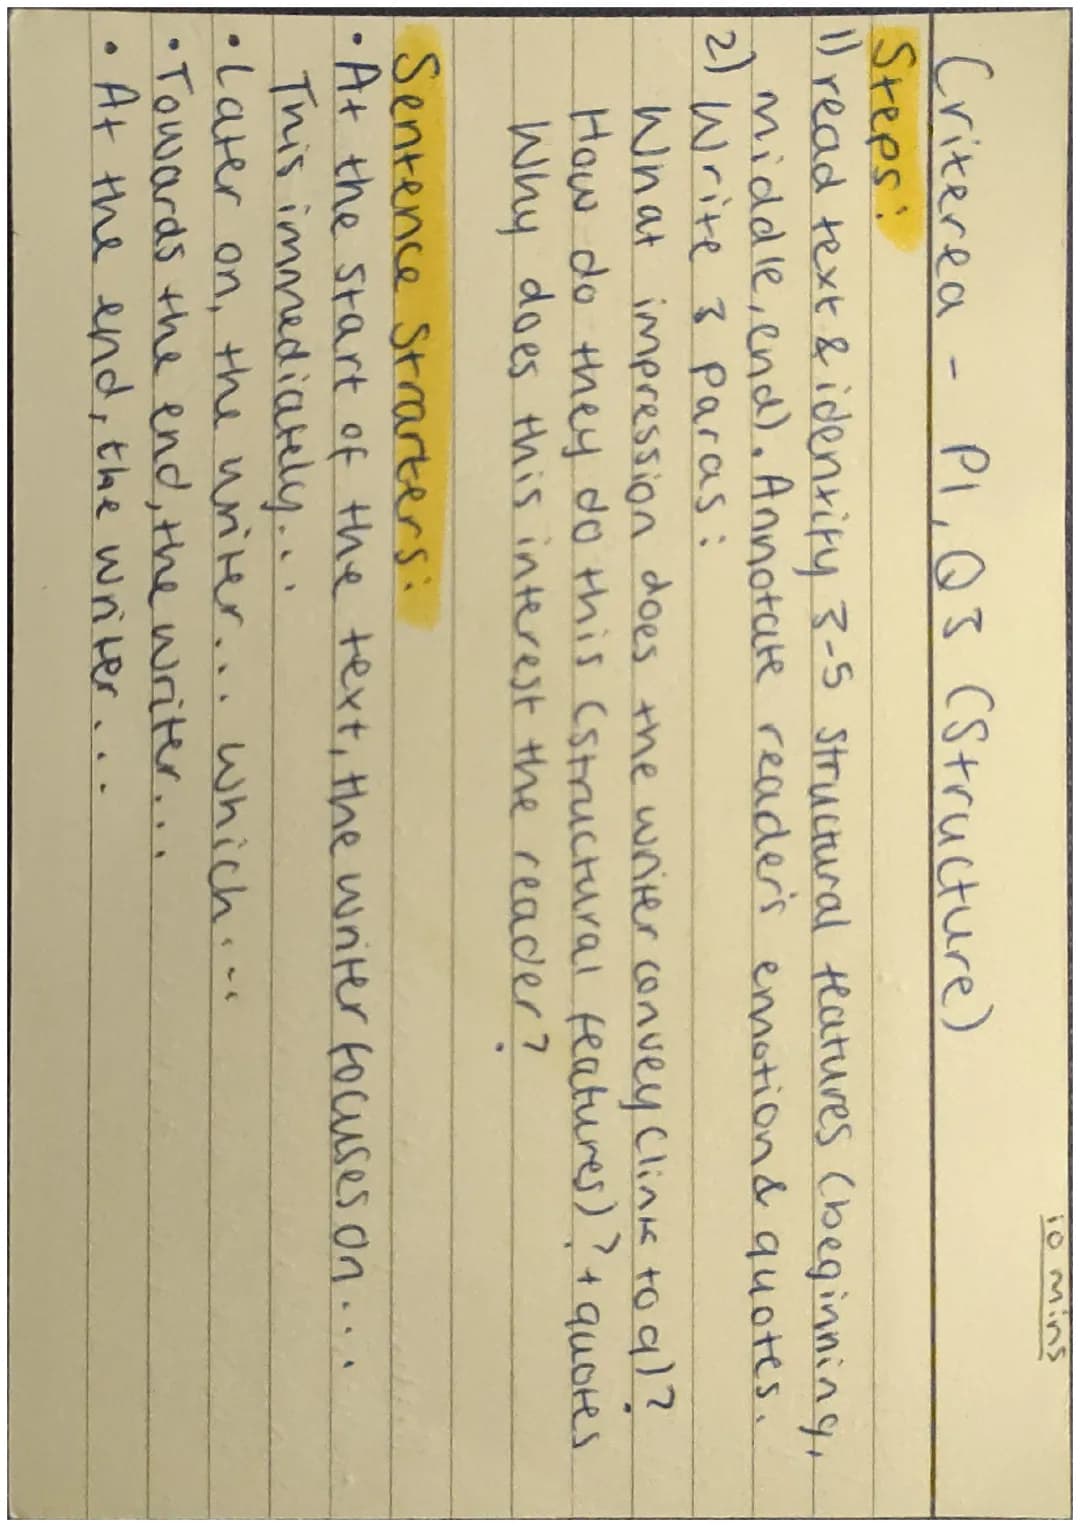 10 mins
Criterea - P1, Q3 (Structure)
Steps:
1) read text & identify 3-5 structural features (beginning,
middle, end). Annotate reader's emotion & quotes.
2) Write 3 paras:
What impression does the writer convey (link to q)?
How do they do this (structural features)? + quotes
Why does this interest the reader?
Sentence Strarters:
• At the start of the text, the writer focuses on...
This immediately...
• Later on, the writer... which...
• Towards the end, the writer...
• At the end, the writer...